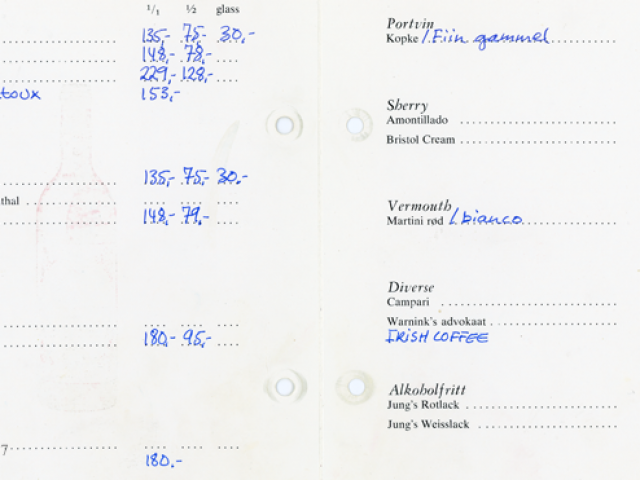 1/1 1/2 glass
135,- 75,- 30,-
148,- 78,-
229,- 128,-
toux 153,-
135,- 75,- 30,-
thal
148,- 79,-
180,- 95,-
7
180,-
Portvin
Kopke / Fiin gammel
Sherry
Amontillado
Bristol Cream
Vermouth
Martini rød / bianco
Diverse
Campari
Warnink's advokaat
IRISH COFFEE
Alkoholfritt
Jung's Rotlack
Jung's Weisslack